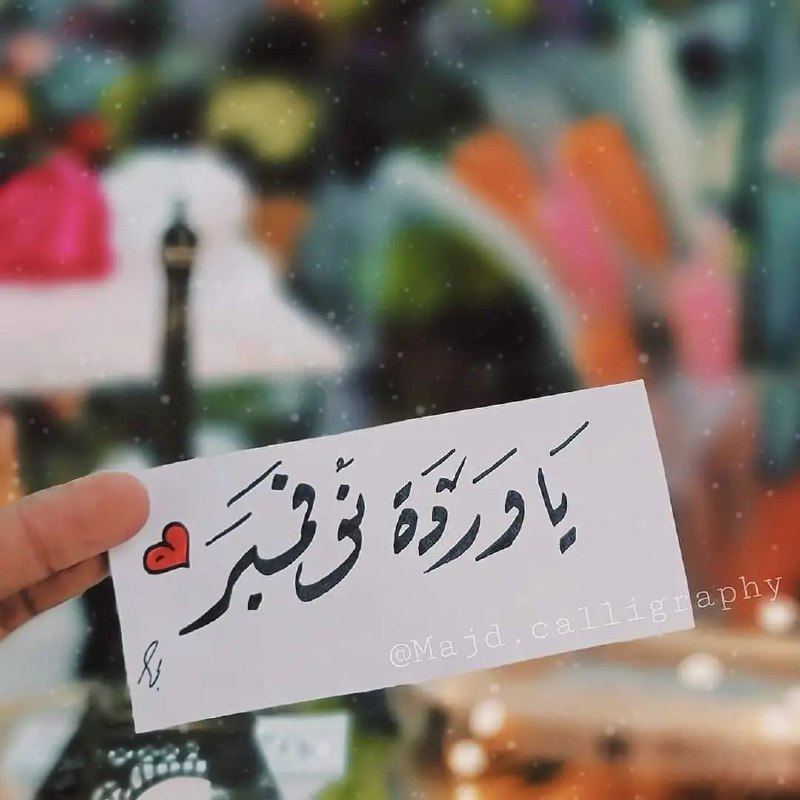 يَا وَرْدَة نُوفَمْبَر
@Majd.calligraphy